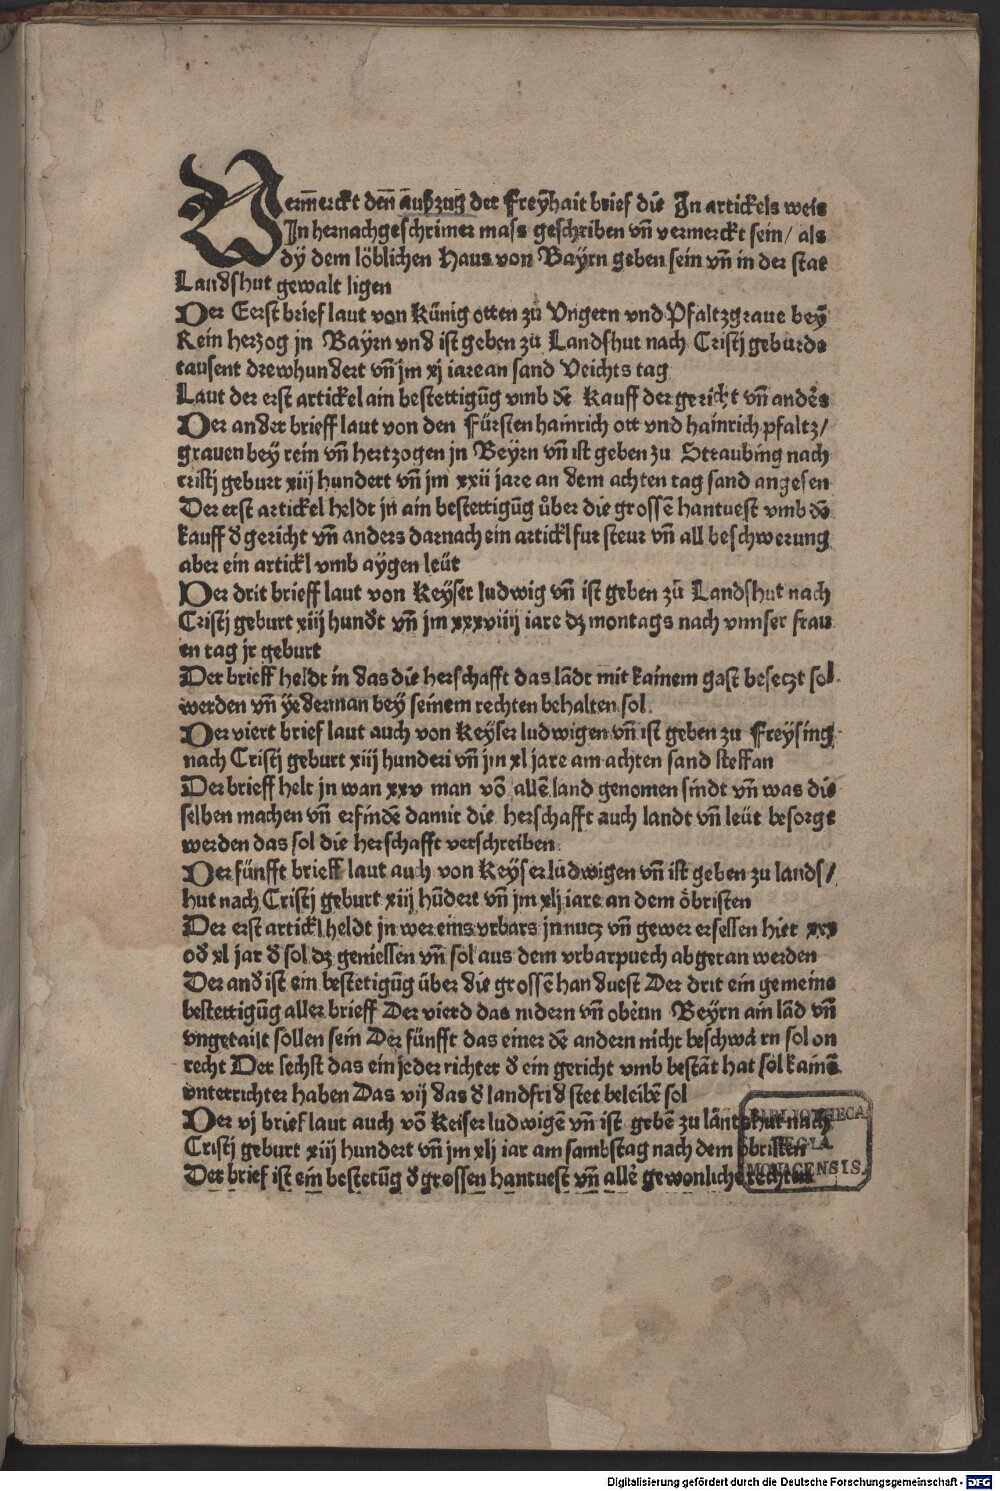 Verm̄erckt den̄ auszug der Freyhait brief die In artickels weis
In hernachgeschrimer mass geschriben vn̄ vermerckt sein/ als
dy dem löblichen Haus von Bayrn geben sein vn̄ in der stat
Landshut gewalt ligen
Der Eerst brief laut von Künig otten zü Vngern vnd Pfaltzgraue bey
Rein herzog jn Bayrn vnd ist geben zü Landshut nach Cristj geburde
tausent drewhundert vn̄ jm xj iare an sand Veichts tag
Laut der erst artickel ain bestettigūg vmb dē Kauff der gericht vn̄ anders
Der ander brieff laut von den Fürsten hainrich ott vnd hainrich pfaltz/
grauen bey rein vn̄ hertzogen jn Beyrn vn̄ ist geben zu Straubing nach
cristj geburt xiij hundert vn̄ jm xxii jare an dem achten tag sand angesen
Der erst artickel heldt jn ain bestettigūg über die grossē hantuest vmb dē
kauff d gericht vn̄ anders darnach ein artickl fur steur vn̄ all beschwerung
aber ein artickl vmb aygen leüt
Der drit brieff laut von Keyser ludwig vn̄ ist geben zü Landshut nach
Cristj geburt xiij hundt vn̄ jm xxxviiij iare dz montags nach vnnser frau
en tag jr geburt
Der brieff heldt in das die herschafft das lādt mit kainem gast besetzt sol
werden vn̄ yederman bey seinem rechten behalten sol.
Der viert brief laut auch von Keyser ludwigen vn̄ ist geben zu Freysing
nach Cristj geburt xiij hunderi vn̄ jm xl jare am achten sand steffan
Der brieff helt jn wan xxv man vō allē land genomen sindt vn̄ was die
selben machen vn̄ erfindē damit die herschafft auch landt vn̄ leüt besorgt
werden das sol die herschafft verschreiben
Der fünfft brieff laut auch von Keyser ludwigen vn̄ ist geben zu lands/
hut nach Cristj geburt xiij hūdert vn̄ jm xlj iare an dem öbristen
Der erst artickl heldt jn wer eins vrbars jn nutz vn̄ gewer ersessen hier xxx
od xl jar d sol dz geniessen vn̄ sol aus dem vrbarpuech abgetan werden
Der and ist ein bestetigūg über die grossē handuest Der drit ein gemeine
bestettigūg aller brieff Der vierd das nidern vn̄ obern Beyrn ain lād vn̄
vngetailt sollen sein Der fünfft das einer dē andern nicht beschwärn sol on
recht Der sechst das ein jeder richter d ein gericht vmb bestāt hat sol kainē
vnterrichter haben Das vij das d landfrid stet beleibē sol
Der vj brief laut auch vō Keiser ludwigē vn̄ ist gebē zu lāntshut nach
Cristj geburt xiij hundert vn̄ jm xlj iar am sambstag nach dem obristen
Der brief ist ein bestetūg d grossen hantuest vn̄ allē gewonliche rechten
BIBLIOTHECA
REGIA
MONACENSIS.
Digitalisierung gefördert durch die Deutsche Forschungsgemeinschaft - DFG